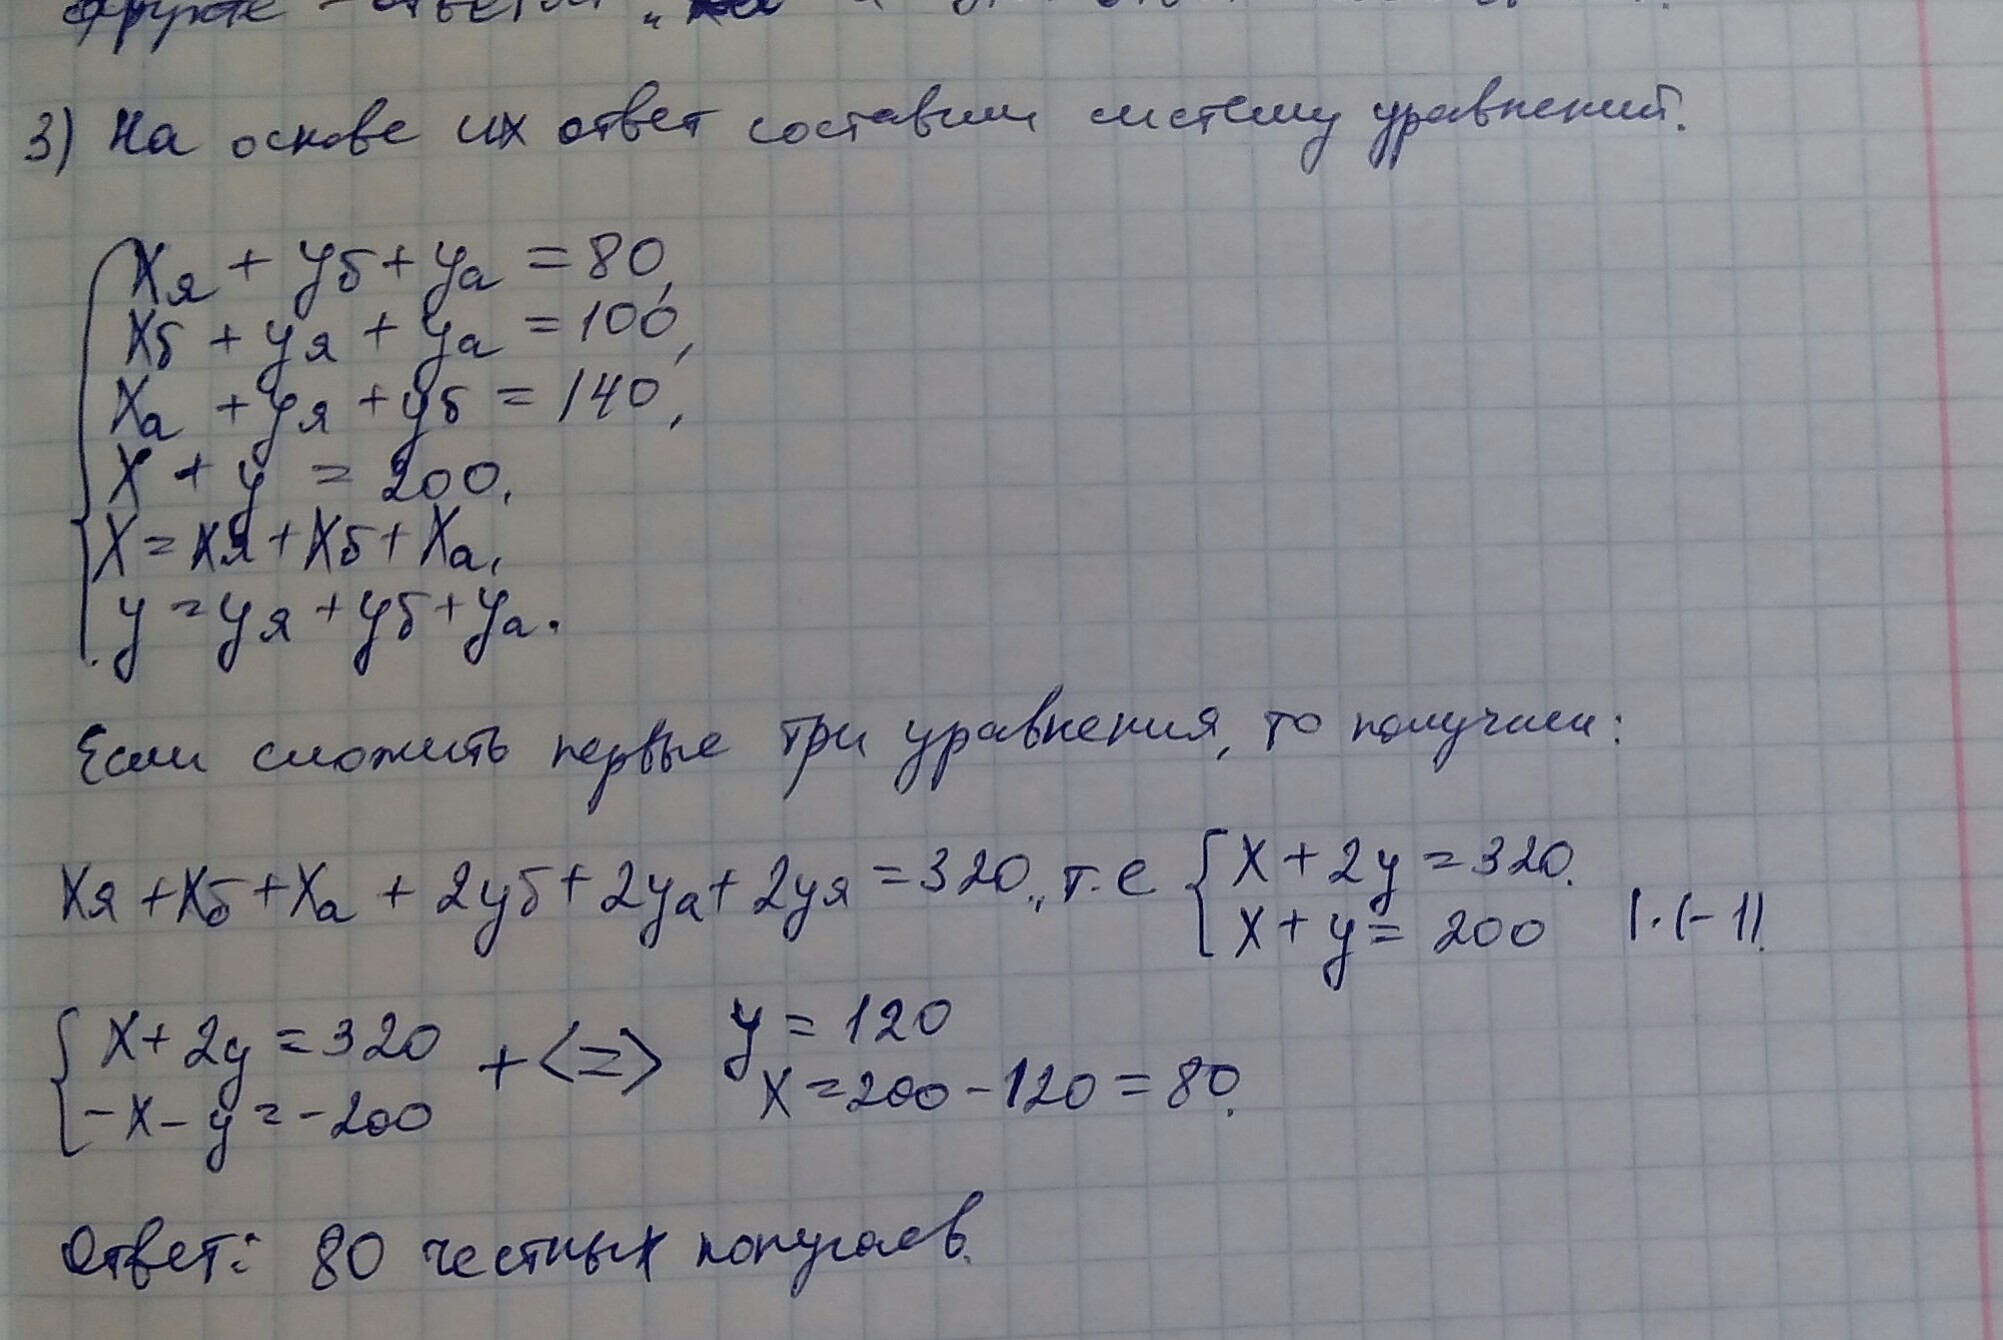 3) На основе их ответ составим систему уравнений.
Xя + yб + yа = 80,
Xб + yя + yа = 100,
Xа + yя + yб = 140,
X + y = 200,
X = Xя + Xб + Xа,
y = yя + yб + yа.
Если сложить первые три уравнения, то получаем:
Xя + Xб + Xа + 2yб + 2yа + 2yя = 320, т.е { X + 2y = 320.
X + y = 200 |·(-1).
{ X + 2y = 320 + <=> y = 120
-X - y = -200 X = 200 - 120 = 80.
Ответ: 80 честных попугаев.